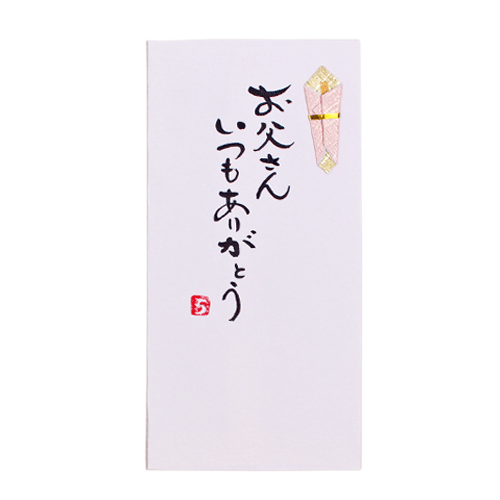 お父さん
いつもありがとう